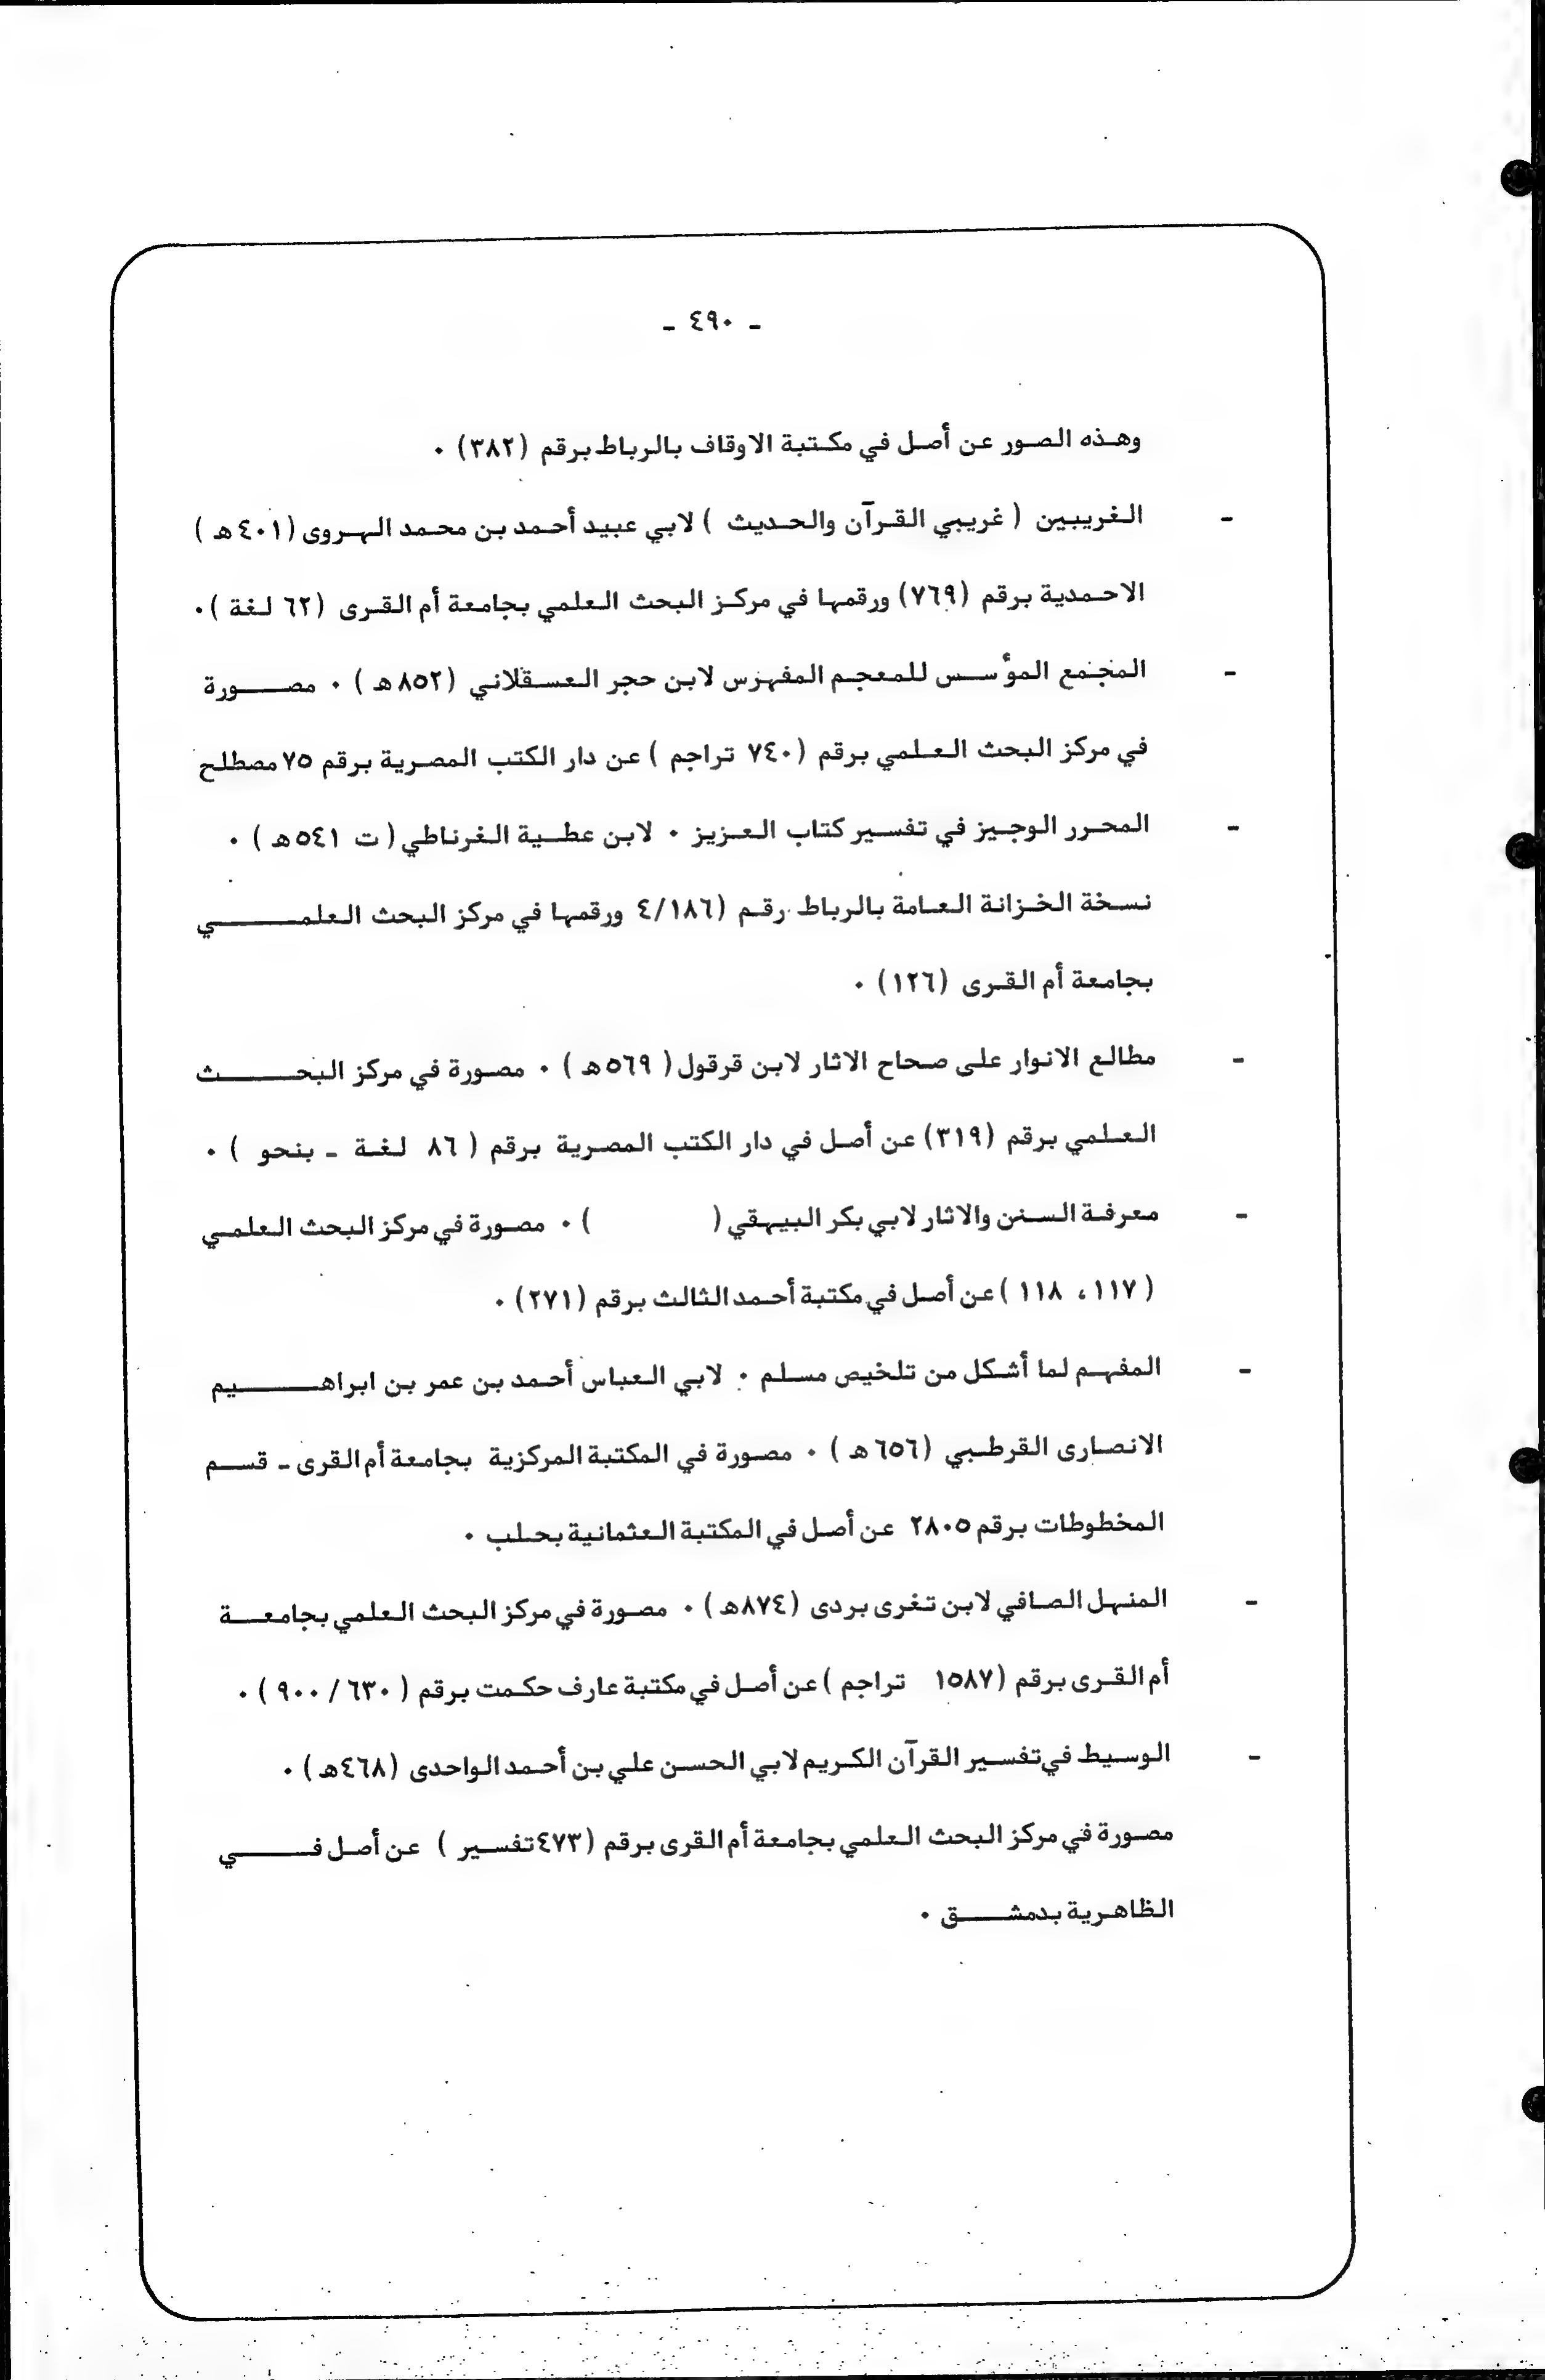 - ٤٩٠ -
وهذه الصور عن أصل في مكتبة الاوقاف بالرباط برقم (٣٨٢) ٠
- الغريبين ( غريبي القرآن والحديث ) لابي عبيد أحمد بن محمد الهروى (٤٠١ هـ )
الاحمدية برقم (٧٦٩) ورقمها في مركز البحث العلمي بجامعة أم القرى (٦٢ لغة )٠
- المجمع المؤسس للمعجم المفهرس لابن حجر العسقلاني (٨٥٢ هـ ) ٠ مصورة
في مركز البحث العلمي برقم (٧٤٠ تراجم ) عن دار الكتب المصرية برقم ٧٥ مصطلح
- المحرر الوجيز في تفسير كتاب العزيز ٠ لابن عطية الغرناطي ( ت ٥٤١ هـ ) ٠
نسخة الخزانة العامة بالرباط رقم (٤/١٨٦ ورقمها في مركز البحث العلمي
بجامعة أم القرى (١٢٦) ٠
- مطالع الانوار على صحاح الاثار لابن قرقول ( ٥٦٩ هـ ) ٠ مصورة في مركز البحث
العلمي برقم (٣١٩) عن أصل في دار الكتب المصرية برقم ( ٨٦ لغة - بنحو ) ٠
- معرفة السنن والاثار لابي بكر البيهقي ( ) ٠ مصورة في مركز البحث العلمي
( ١١٧ ، ١١٨ ) عن أصل في مكتبة أحمد الثالث برقم (٢٧١) ٠
- المفهم لما أشكل من تلخيص مسلم ٠ لابي العباس أحمد بن عمر بن ابراهيم
الانصارى القرطبي (٦٥٦ هـ ) ٠ مصورة في المكتبة المركزية بجامعة أم القرى - قسم
المخطوطات برقم ٢٨٠٥ عن أصل في المكتبة العثمانية بحلب ٠
- المنهل الصافي لابن تغرى بردى (٨٧٤هـ ) ٠ مصورة في مركز البحث العلمي بجامعة
أم القرى برقم (١٥٨٧ تراجم ) عن أصل في مكتبة عارف حكمت برقم ( ٦٣٠ / ٩٠٠ ) ٠
- الوسيط في تفسير القرآن الكريم لابي الحسن علي بن أحمد الواحدى (٤٦٨هـ ) ٠
مصورة في مركز البحث العلمي بجامعة أم القرى برقم (٤٧٣ تفسير ) عن أصل في
الظاهرية بدمشق ٠